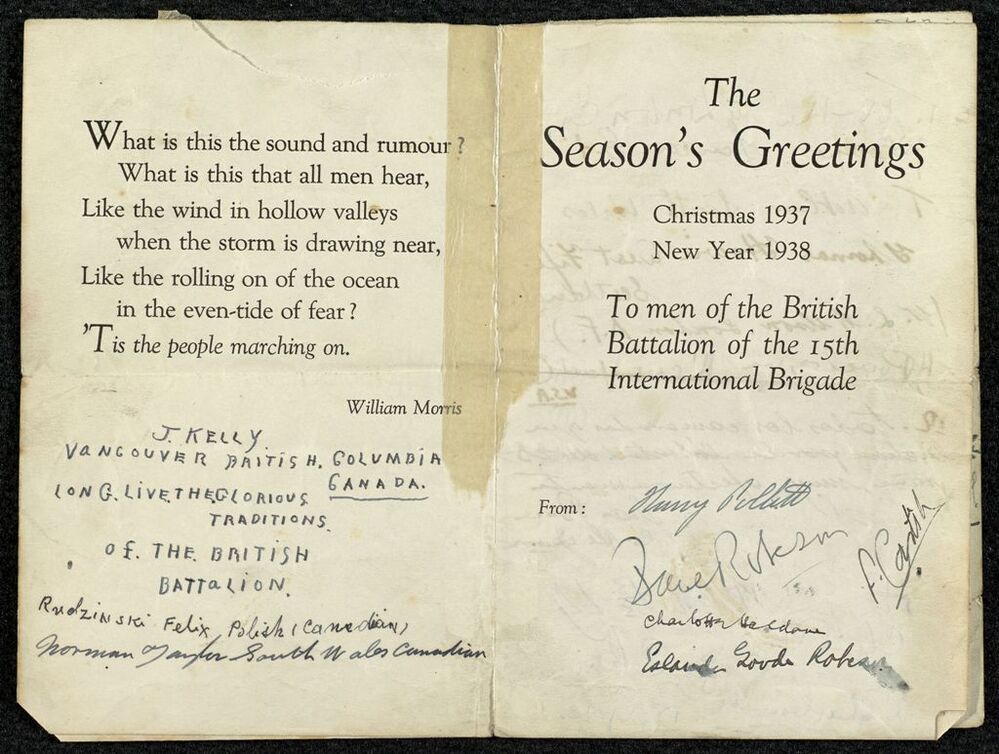 What is this the sound and rumour?
What is this that all men hear,
Like the wind in hollow valleys
when the storm is drawing near,
Like the rolling on of the ocean
in the even-tide of fear?
'Tis the people marching on.
William Morris
J. KELLY.
VANCOUVER BRITISH. COLUMBIA
CANADA.
LONG. LIVE.THE GLORIOUS
TRADITIONS.
OF. THE BRITISH
BATTALION.
Rudzinski Felix Polish (Canadian)
Norman Taylor South Wales Canadian
The
Season's Greetings
Christmas 1937
New Year 1938
To men of the British
Battalion of the 15th
International Brigade
From:
Harry Pollitt
Robeson
Charlotte Haldane
Eslanda Goode Robeson